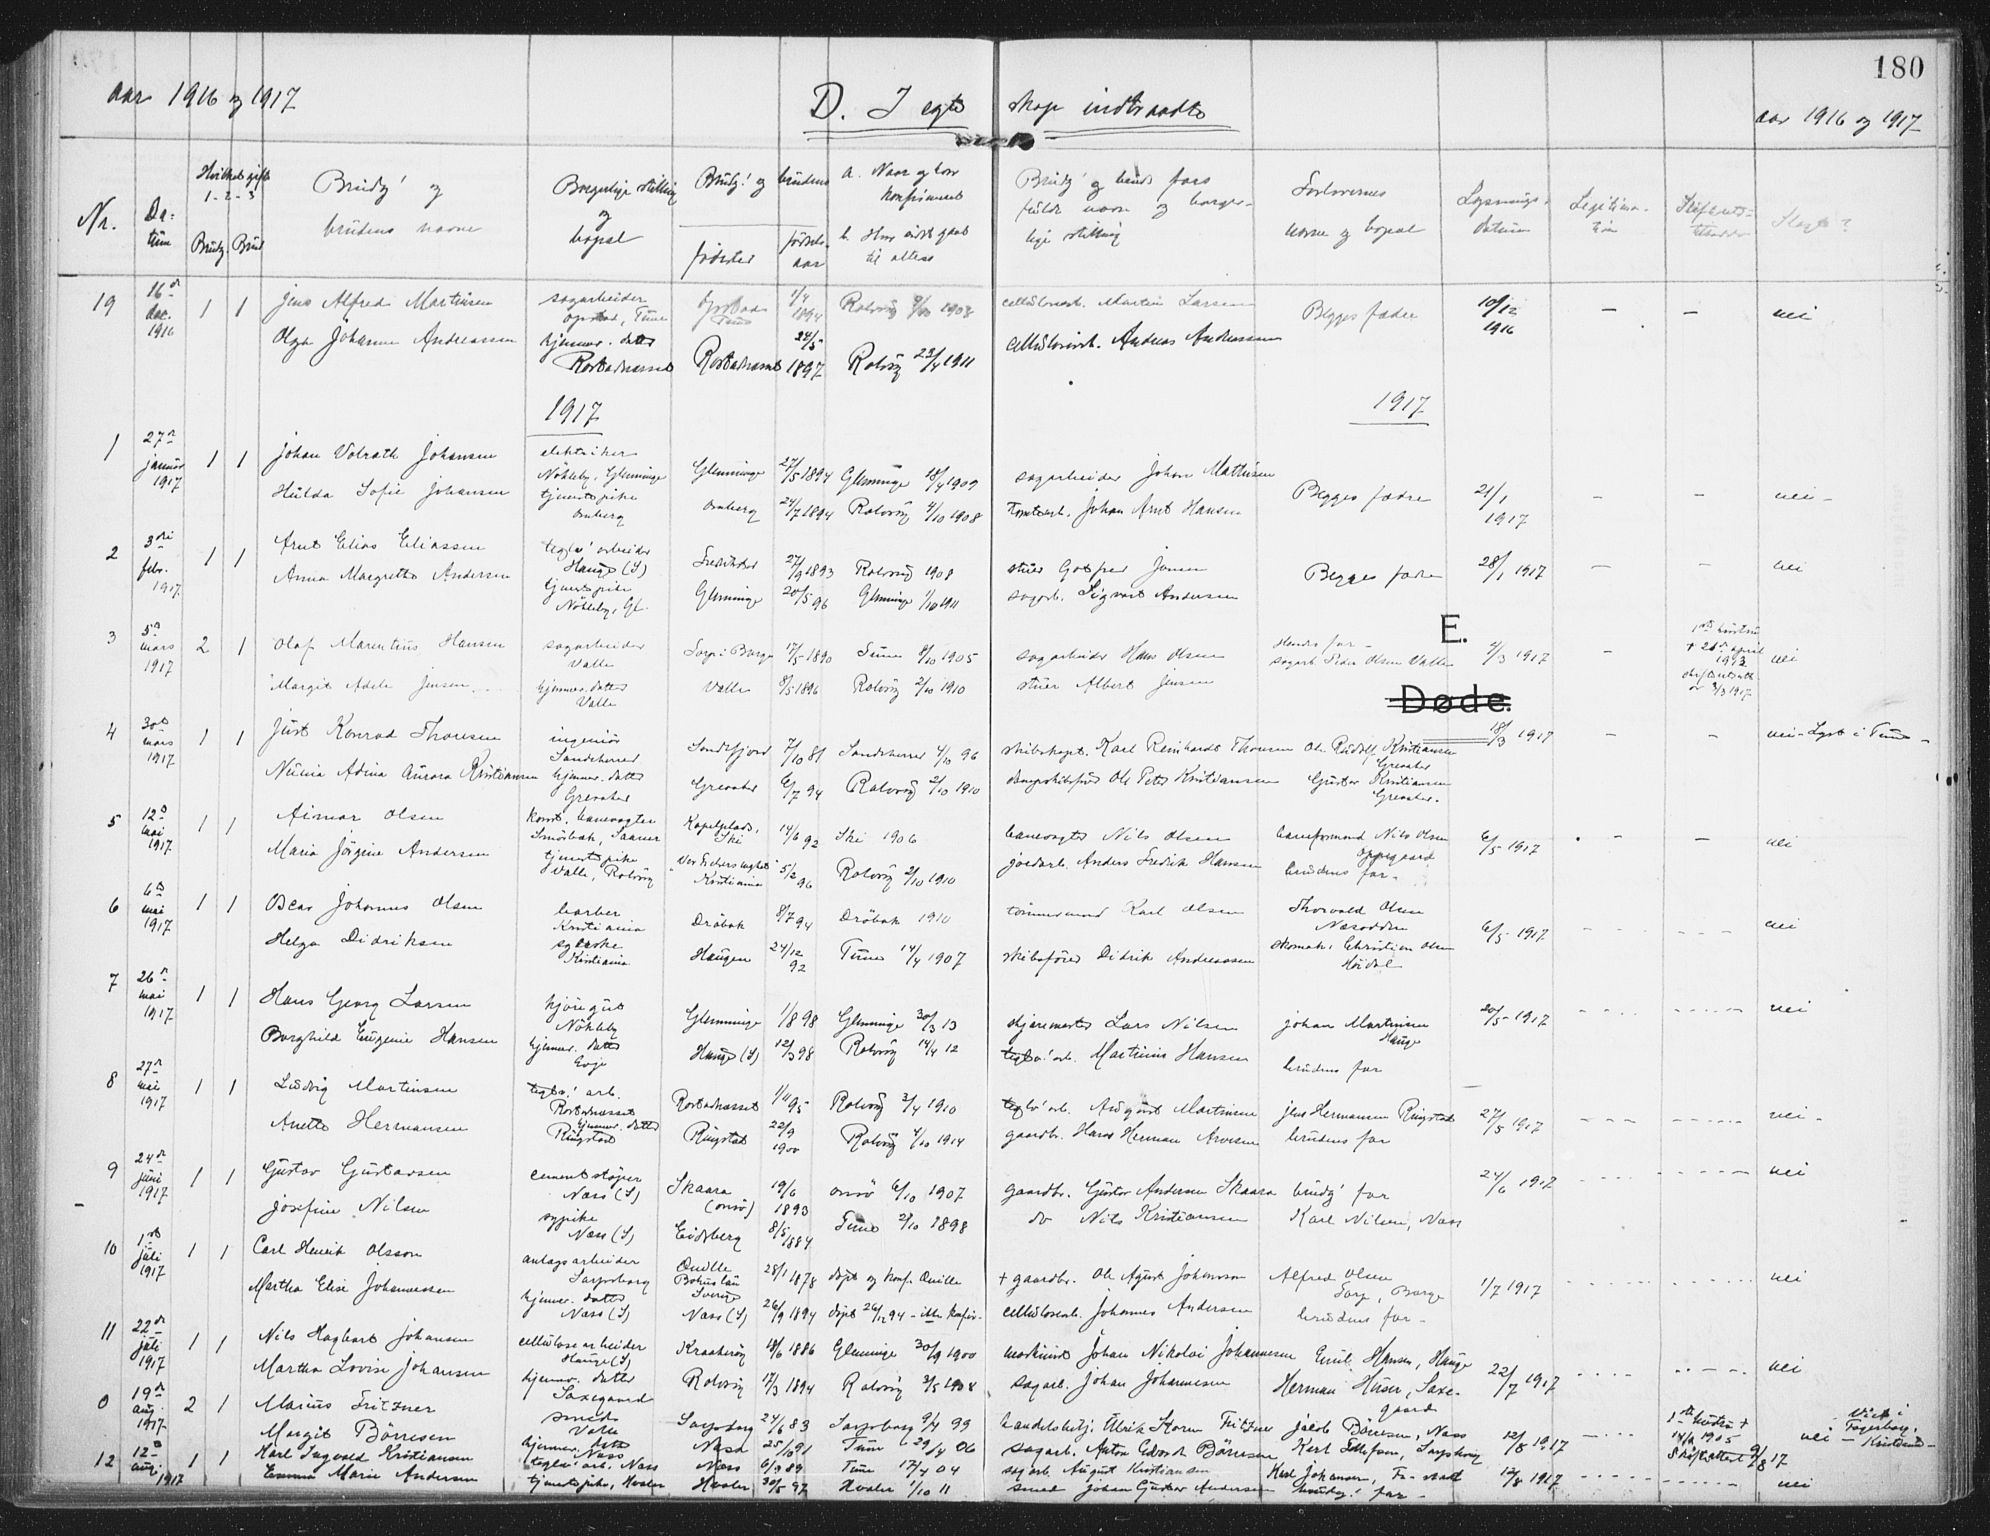 180
aar 1916 og 1917 D. I egte skap indtraadte aar 1916 og 1917
Nr. Da- tum Hvilket gift 1-2-3 Brudg. Brud Brudg.' og brudens navne Borgerlige stilling og bopæl Brudg.' og brudens fødested fødsels- aar a. Naar og hvor konfirmeret b. Hvor sidst gaat til alters Brudg.' og bruds fars fulde navn og borger- lige stilling Forlovernes navne og bopæl Lysnings- datum Legitima- tion Skifteret- Slegt?
19 16de dec. 1916 1 1 Jens Alfred Martinsen sagarbeider Opstad, Tune Opstad Tune 1/4 1894 Rolvsøy 4/10 1908 cellulosearb. Martin Larsen Begges fædre 10/12 1916 - - nei
Olga Johanne Andreassen hjemmev. datter Rostadnæsset Rostadnæsset 24/5 1897 Rolvsøy 23/4 1911 cellulosearb. Andreas Andreassen
1917 1917
1 27de januar 1917 1 1 Johan Volrath Johansen elektriker Nökleby, Glemminge Glemminge 27/5 1894 Glemminge 18/4 1909 sagarbeider Johan Mathisen Begges fædre 21/1 1917 - - nei -
Hulda Sofie Johansen tjenestepike Omberg Omberg 24/7 1894 Rolvsöy 4/10 1908 tomtearb. Johan Arnt Hansen
2 3die febr. 1917 1 1 Arnt Elias Eliassen teglv.' arbeider Hauge (S) 27/9 1893 Rolvsöy 1908 stuer Jensen Begges fædre 28/1 1917 - - nei
Anna Margrethe Andersen tjenestepike Nökleby, Gl. Glemminge 20/5 96 Glemminge 1/10 1911 sagarb. Sigvart Andersen
E.
3 5te mars 1917 2 1 Olaf Marentius Hansen sagarbeider Valle Sorp i Borge 17/5 1890 Tune 8/10 1905 sagarbeider Hans Olsen Hendes far - sagarb. Peder Olsen Valle 4/3 1917 - 1ste hustru + 26de april 1913 skifteattest av 3/3 1917 nei
Margit Adele Jensen hjemmev. datter Valle Valle 8/5 1896 Rolvsöy 2/10 1910 stuer Albert Jensen
Døde.
4 30te mars 1917 1 1 Just Konrad Thoresen ingeniør Sandeherred Sandefjord 7/10 81 Sandeherred 4/10 96 skibskapt. Karl Reinhardt Thoresen Ole Rudolf Kristiansen Greaaker 18/3 1917 - - nei - Lyst i Tune -
Nunia Adina Aurora Kristiansen hjemmev. datter Greaaker Greaaker 6/7 94 Rolvsöy 2/10 1910 dampskibsförer Ole Peter Kristiansen Gustav Kristiansen Greaaker.
5 12te mai 1917 1 1 Aimar Olsen konst. banevogter Smörbæk, Saaner Kapelplads, Ski 14/6 92 Ski 1906 banevogter Nils Olsen baneformand Nils Olsen Oppegaard 6/5 1917 - - nei
Maria Jörgine Andersen tjenestepike Valle, Rolvsöy Kristiania 5/2 96 Rolvsöy 2/10 1910 jordarb. Anders Fredrik Hansen brudens far -
6 6te mai 1917 1 1 Oscar Johannes Olsen barber Kristiania Dröbak 8/7 94 Dröbak 1910 tömmermand Karl Olsen Thorvald Olsen Næsodden 6/5 1917 nei
Helga Didriksen syerske Kristiania Haugen 24/12 92 Tune 14/4 1907 skibsförer Didrik Andreassen skomak. Christian Olsen Höidal
7 26de mai 1917 1 1 Hans Georg Larsen kjøregut Nökleby Glemminge 1/8 98 Glemminge 30/3 13 skjæremester Lars Nilsen Johan Martinsen Hauge 20/5 1917 nei
Borghild Eugenie Hansen hjemmev. datter Evje Hauge (S) 12/3 98 Rolvsöy 14/4 12 teglv.' arb. Martinus Hansen brudens far
8 27de mai 1917 1 1 Ludvig Martinsen teglv.' arb. Rostadnæsset Rostadnæsset 1/11 95 Rolvsöy 3/4 1910 teglv.' arb. August Martinsen Jens Hermansen Ringstad 27/5 1917 nei -
Anette Hermansen hjemmev. datter Ringstad Ringstad 22/9 1900 Rolvsöy 4/10 1914 gaardbr. Hans Herman Arvesen brudens far
9 24de juni 1917 1 1 Gustav Gustavsen cementstøper Næss (S) Skaara (Onsö) 19/6 1893 Onsö 6/10 1907 gaardbr. Gustav Andersen Skaara brudg.' far 24/6 1917 nei
Josefine Nilsen sypike Næss (S) Eidsberg 8/5 1884 Tune 2/10 1898 do Nils Kristiansen Karl Nilsen, Næss
10 1ste juli 1917 1 1 Carl Henrik Olsson anlægsarbeider Sarpsborg Quille Bohuslän Sverige 28/1 1878 döpt og konf. Quille + gaardbr. Ole Agust Johansson Alfred Olsen Sorp, Borge 1/7 1917 nei
Martha Elise Johannessen hjemmev. datter Næss (S) Næss (S) 26/9 1894 döpt 26/12 94 - ikke konfir. cellulosearb. Johannes Andersen brudens far -
11 22de juli 1917 1 1 Nils Hagbart Johansen cellulosearbeider Hauge (S) Kraakeröy 18/6 1886 Glemminge 30/9 1900 maskinist Johan Nikolai Johannesen Emil Hansen, Hauge 22/7 1917 nei
Martha Lovise Johansen hjemmev. datter Saxegaard Rolvsöy 17/3 1894 Rolvsöy 3/5 1908 sagarb. Johan Johannesen Herman Huser, Saxe- gaard
0 19de aug. 1917 2 1 Marius Fritzner smed Valle Sarpsborg 24/6 83 Sarpsborg 9/4 99 handelsbetj. Ulrik Storm Fritzner Jacob Börresen, Næss 12/8 1917 1ste hustru + 14/2 1905 Skifteattest 9/8 17 nei - Viet i Fagerborg, Kristiania -
Margit Börresen hjemmev. datter Næss Næss 25/10 91 Tune 29/4 06 sagarb. Anton Edvard Börresen Karl Steffens, Sarpsborg
12 12te aug. 1917 1 1 Karl Ingvald Kristiansen teglv. arb. Næss Næss 6/3 89 Tune 17/4 04 sagarb. August Kristiansen Karl Johansen, Fr-stad 12/8 1917 nei
Emma Marie Andersen tjenestepike, Hvaler Hvaler 30/5 97 Hvaler 1/10 11 smed Johan Gustav Andersen brudg.' far -